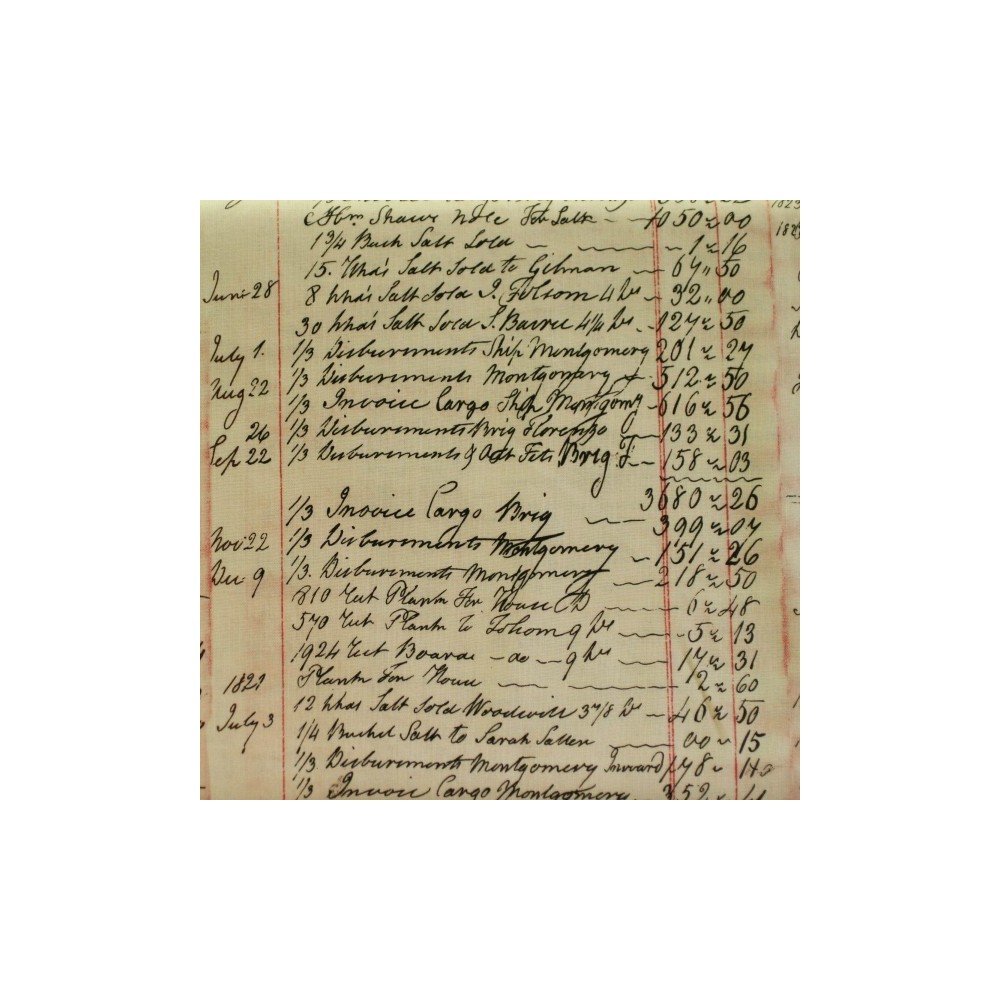 Shaws note For Salt 1050 00
1 3/4 Bush Salt Sold 1 16
15. hhds Salt Sold to Gilman 67 50
June 28 8 hhds Salt Sold J. Folsom 4 Ds 32 00
30 hhds Salt Sold S. 4 1/4 Ds 127 50
July 1. 1/3 Disbursments Ship Montgomery 201 27
Aug 22 1/3 Disbursments Montgomery 512 50
1/3 Invoice Cargo Ship Montgomy 616 56
26 1/3 Disbursments Brig Florenzo 133 31
Sep 22 1/3 Disbursments & Out Fits Brig F 158 03
3680 26
1/3 Invoice Cargo Brig 399 07
Nov 22 1/3 Disbursments Montgomery 151 26
Dec 9 1/3. Disbursments Montgomery 218 50
810 feet Plank For House 6 48
570 feet Plank to Folsom 9 Ds 5 13
1924 feet Boards do 9 Ds 17 31
1827 Plank For House 2 60
July 3 12 hhds Salt Sold 3 7/8 Ds 46 50
1/4 Bushel Salt to Sarah 00 15
1/3 Disbursments Montgomery Inward 178
1/3 Invoice Cargo Montgomery 352